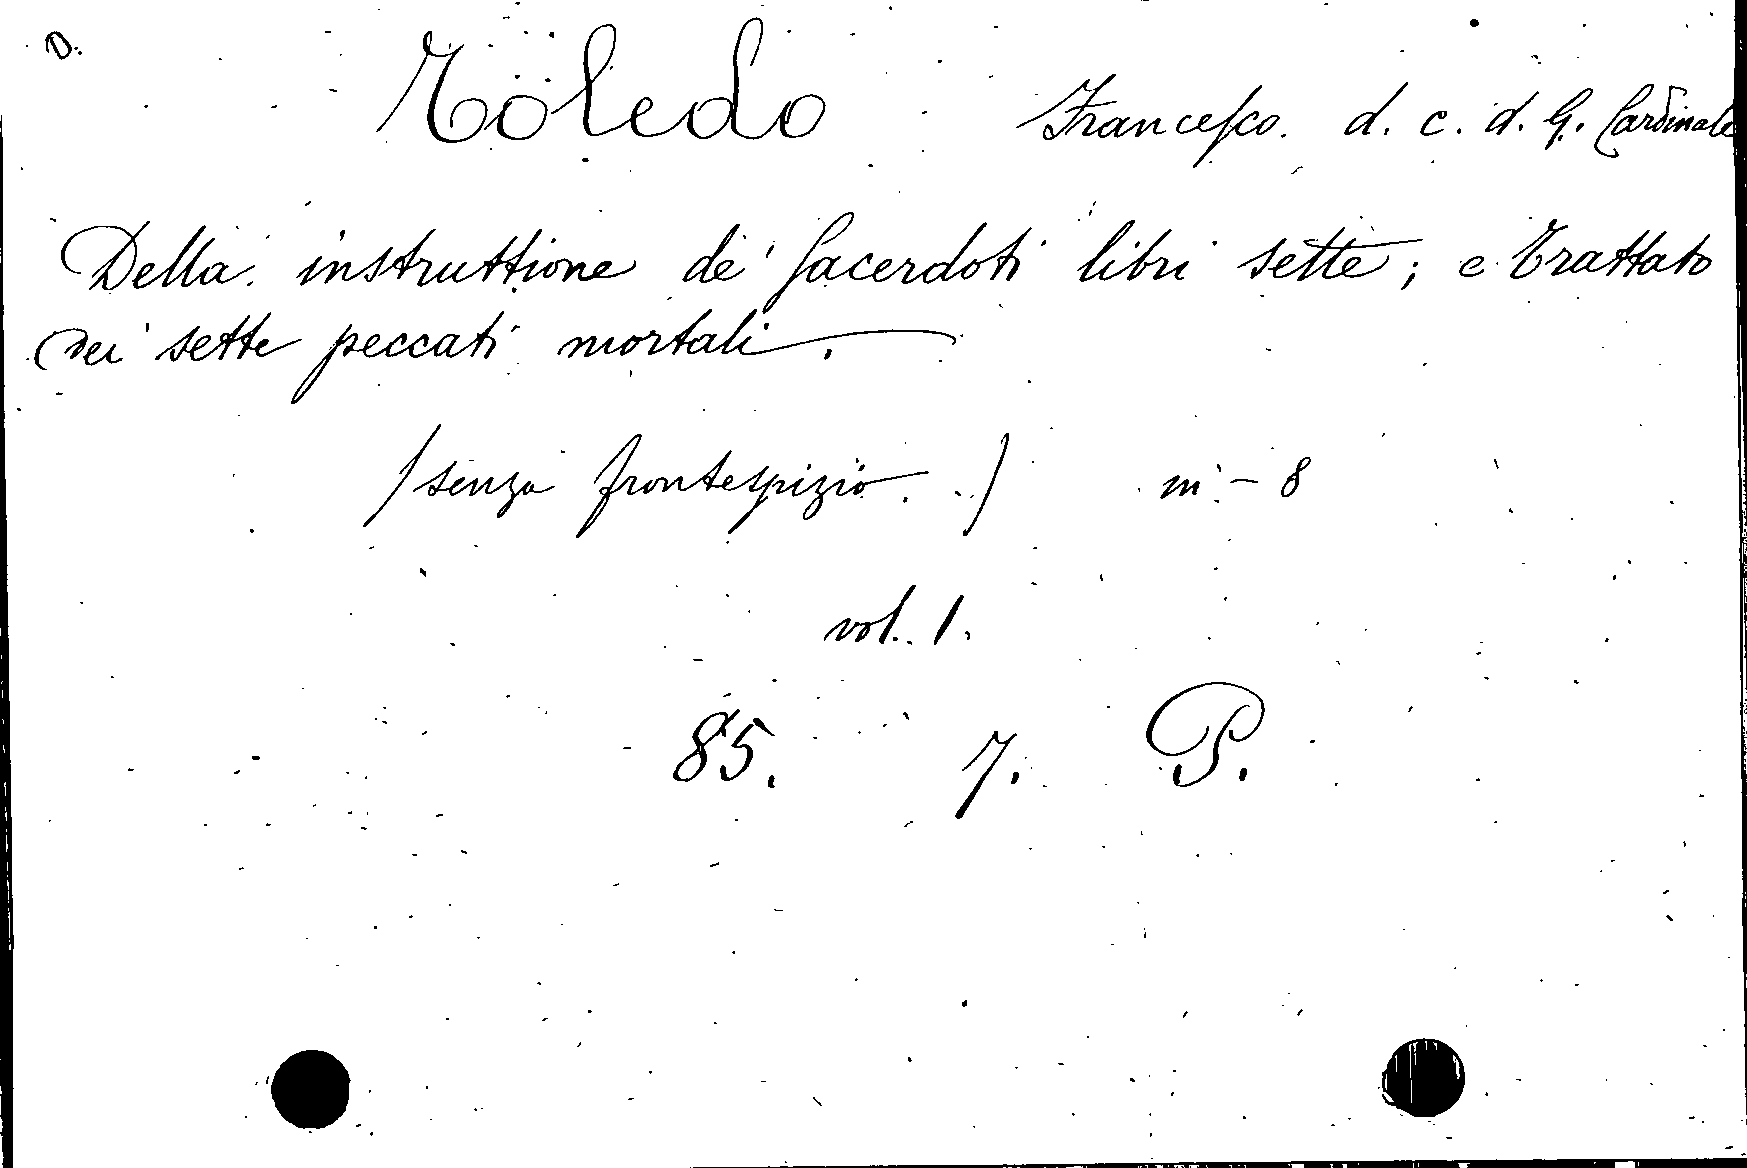 D.
Toledo Francesco. d. c. d. G. Cardinale
Della instruttione de' sacerdoti libri sette; e trattato
dei sette peccati mortali.
(senza frontespizio.) in - 8
vol. 1.
85. 7. P.